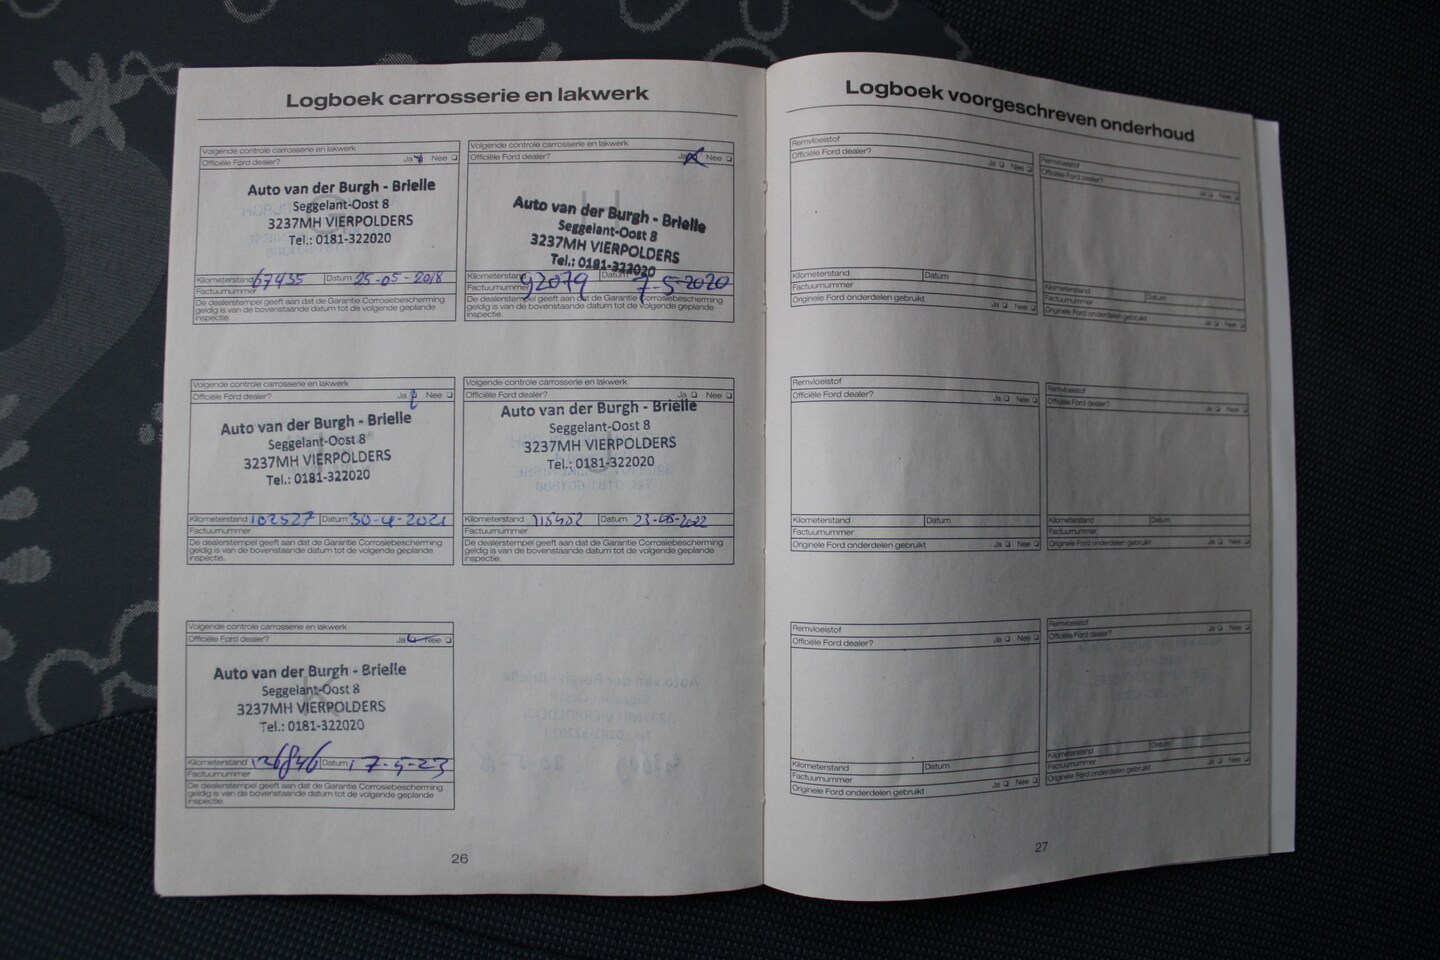 Logboek carrosserie en lakwerk
Volgende controle carrosserie en lakwerk
Officiële Ford dealer? Ja Nee
Auto van der Burgh - Brielle
Seggelant-Oost 8
3237MH VIERPOLDERS
Tel.: 0181-322020
Kilometerstand 67435 Datum 25-05-2018
Factuurnummer
De dealerstempel geeft aan dat de Garantie Corrosiebescherming
geldig is van de bovenstaande datum tot de volgende geplande
inspectie.
Volgende controle carrosserie en lakwerk
Officiële Ford dealer? Ja Nee
Auto van der Burgh - Brielle
Seggelant-Oost 8
3237MH VIERPOLDERS
Tel.: 0181-322020
Kilometerstand 92079 Datum 7-5-2020
Factuurnummer
De dealerstempel geeft aan dat de Garantie Corrosiebescherming
geldig is van de bovenstaande datum tot de volgende geplande
inspectie.
Volgende controle carrosserie en lakwerk
Officiële Ford dealer? Ja Nee
Auto van der Burgh - Brielle
Seggelant-Oost 8
3237MH VIERPOLDERS
Tel.: 0181-322020
Kilometerstand 102527 Datum 30-4-2021
Factuurnummer
De dealerstempel geeft aan dat de Garantie Corrosiebescherming
geldig is van de bovenstaande datum tot de volgende geplande
inspectie.
Volgende controle carrosserie en lakwerk
Officiële Ford dealer? Ja Nee
Auto van der Burgh - Brielle
Seggelant-Oost 8
3237MH VIERPOLDERS
Tel.: 0181-322020
Kilometerstand 115402 Datum 23-05-2022
Factuurnummer
De dealerstempel geeft aan dat de Garantie Corrosiebescherming
geldig is van de bovenstaande datum tot de volgende geplande
inspectie.
Volgende controle carrosserie en lakwerk
Officiële Ford dealer? Ja Nee
Auto van der Burgh - Brielle
Seggelant-Oost 8
3237MH VIERPOLDERS
Tel.: 0181-322020
Kilometerstand 126846 Datum 17-5-23
Factuurnummer
De dealerstempel geeft aan dat de Garantie Corrosiebescherming
geldig is van de bovenstaande datum tot de volgende geplande
inspectie.
26
Logboek voorgeschreven onderhoud
Remvloeistof
Officiële Ford dealer? Ja Nee
Kilometerstand Datum
Factuurnummer
Originele Ford onderdelen gebruikt Ja Nee
Remvloeistof
Officiële Ford dealer? Ja Nee
Kilometerstand Datum
Factuurnummer
Originele Ford onderdelen gebruikt Ja Nee
Remvloeistof
Officiële Ford dealer? Ja Nee
Kilometerstand Datum
Factuurnummer
Originele Ford onderdelen gebruikt Ja Nee
Remvloeistof
Officiële Ford dealer? Ja Nee
Kilometerstand Datum
Factuurnummer
Originele Ford onderdelen gebruikt Ja Nee
Remvloeistof
Officiële Ford dealer? Ja Nee
Kilometerstand Datum
Factuurnummer
Originele Ford onderdelen gebruikt Ja Nee
Remvloeistof
Officiële Ford dealer? Ja Nee
Kilometerstand Datum
Factuurnummer
Originele Ford onderdelen gebruikt Ja Nee
27